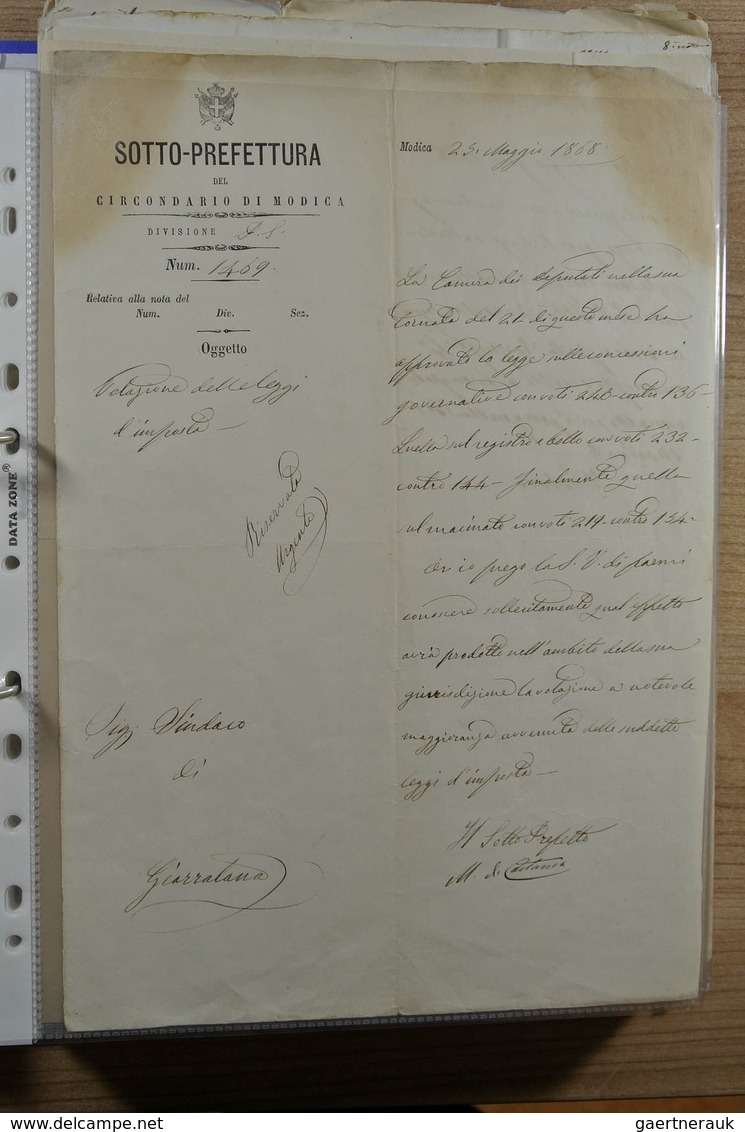 SOTTO-PREFETTURA
DEL
CIRCONDARIO DI MODICA
DIVISIONE P. S.
Num. 1469.
Relativa alla nota del
Num. Div. Sez.
Oggetto
Votazione delle leggi
d'imposta —
Riservata
Urgente
Sig. Sindaco
di
Giarratana
Modica 25. Maggio 1868
La Camera dei Deputati nella sua
tornata del 21 di questo mese ha
approvato la legge sulle concessioni
governative con voti 240 contro 136 —
Quella sul registro e bollo con voti 232 —
contro 144 — finalmente quella
sul macinato con voti 219 contro 134 —
Or io prego la S. V. di farmi
conoscere sollecitamente qual effetto
avrà prodotto nell'ambito della sua
giurisdizione la votazione a notevole
maggioranza avvenuta delle suddette
leggi d'imposta —
Il Sotto Prefetto
M. di
DATA ZONE®
gaertnerauk